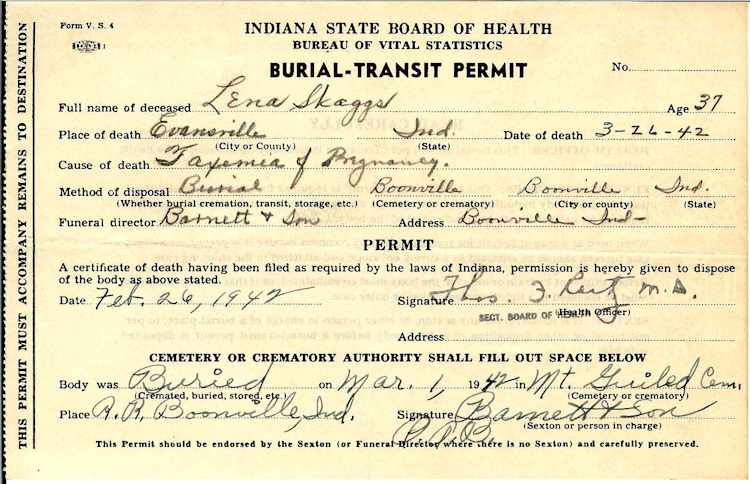 Form V. S. 4
INDIANA STATE BOARD OF HEALTH
BUREAU OF VITAL STATISTICS
BURIAL-TRANSIT PERMIT
No.
Full name of deceased Lena Skaggs Age 37
Place of death Evansville Ind. Date of death 3-26-42
(City or County) (State)
Cause of death Toxemia of Pregnancy.
Method of disposal Burial Boonville Boonville Ind.
(Whether burial cremation, transit, storage, etc.) (Cemetery or crematory) (City or county) (State)
Funeral director Barnett & Son Address Boonville Ind-
PERMIT
A certificate of death having been filed as required by the laws of Indiana, permission is hereby given to dispose
of the body as above stated.
Date Feb. 26, 1942 Signature Thos. M.D.
SECT. BOARD OF HEALTH (Health Officer)
Address
CEMETERY OR CREMATORY AUTHORITY SHALL FILL OUT SPACE BELOW
Body was Buried on Mar. 1, 1942 in Mt. Cem.
(Cremated, buried, stored, etc.) (Cemetery or crematory)
Place R.R. Boonville, Ind. Signature Barnett & Son
(Sexton or person in charge)
This Permit should be endorsed by the Sexton (or Funeral Director where there is no Sexton) and carefully preserved.
THIS PERMIT MUST ACCOMPANY REMAINS TO DESTINATION